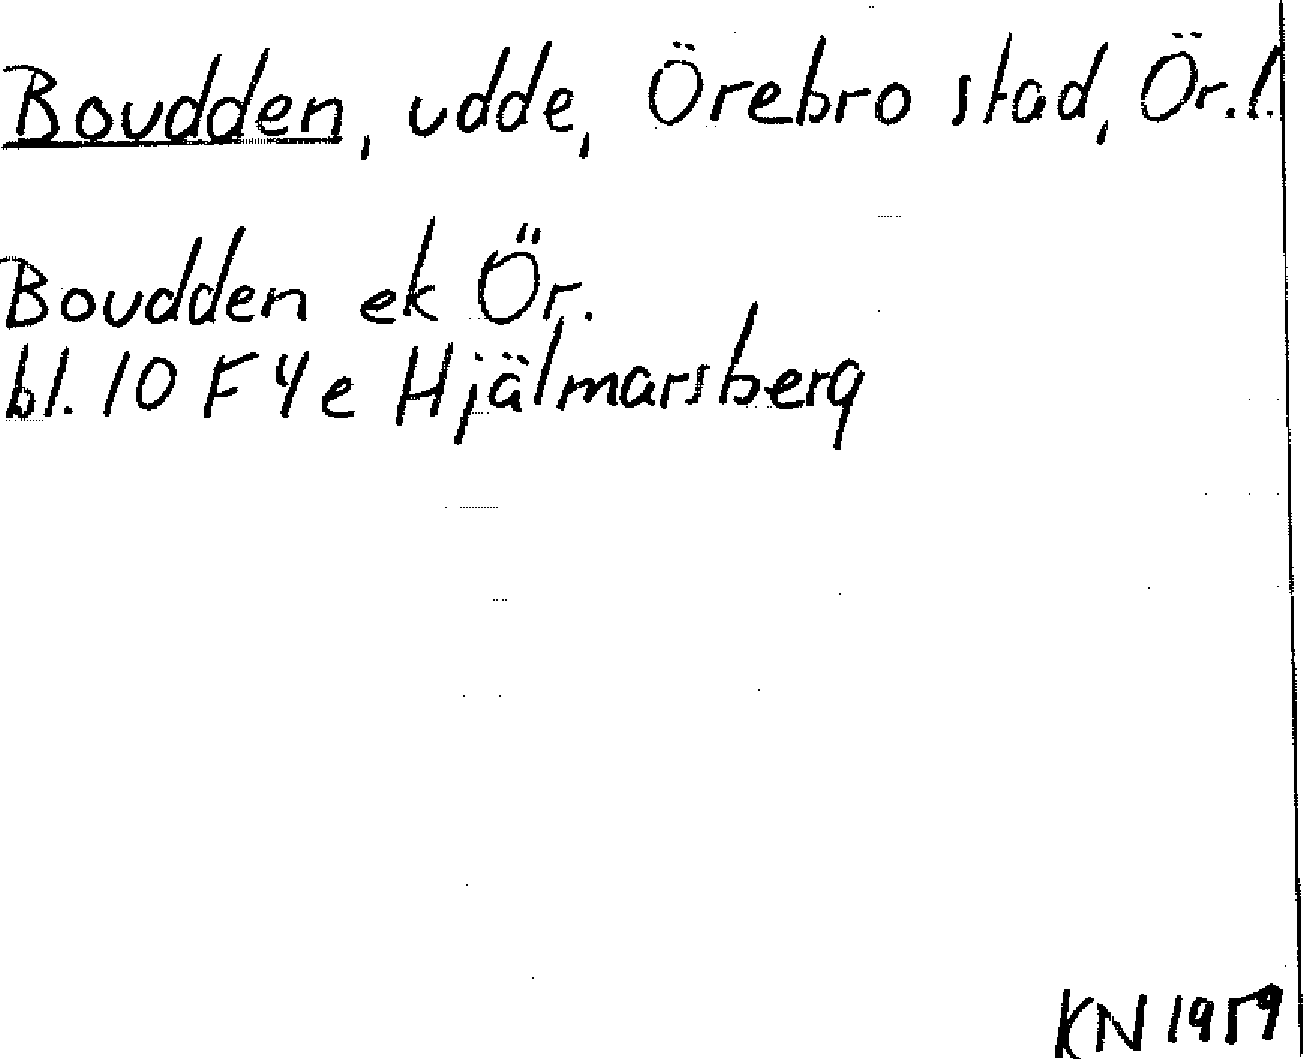 Boudden, udde, Örebro stad, Ör.l.
Boudden ek Ör.
bl. 10 F 4e Hjälmarsberg
KN 1959